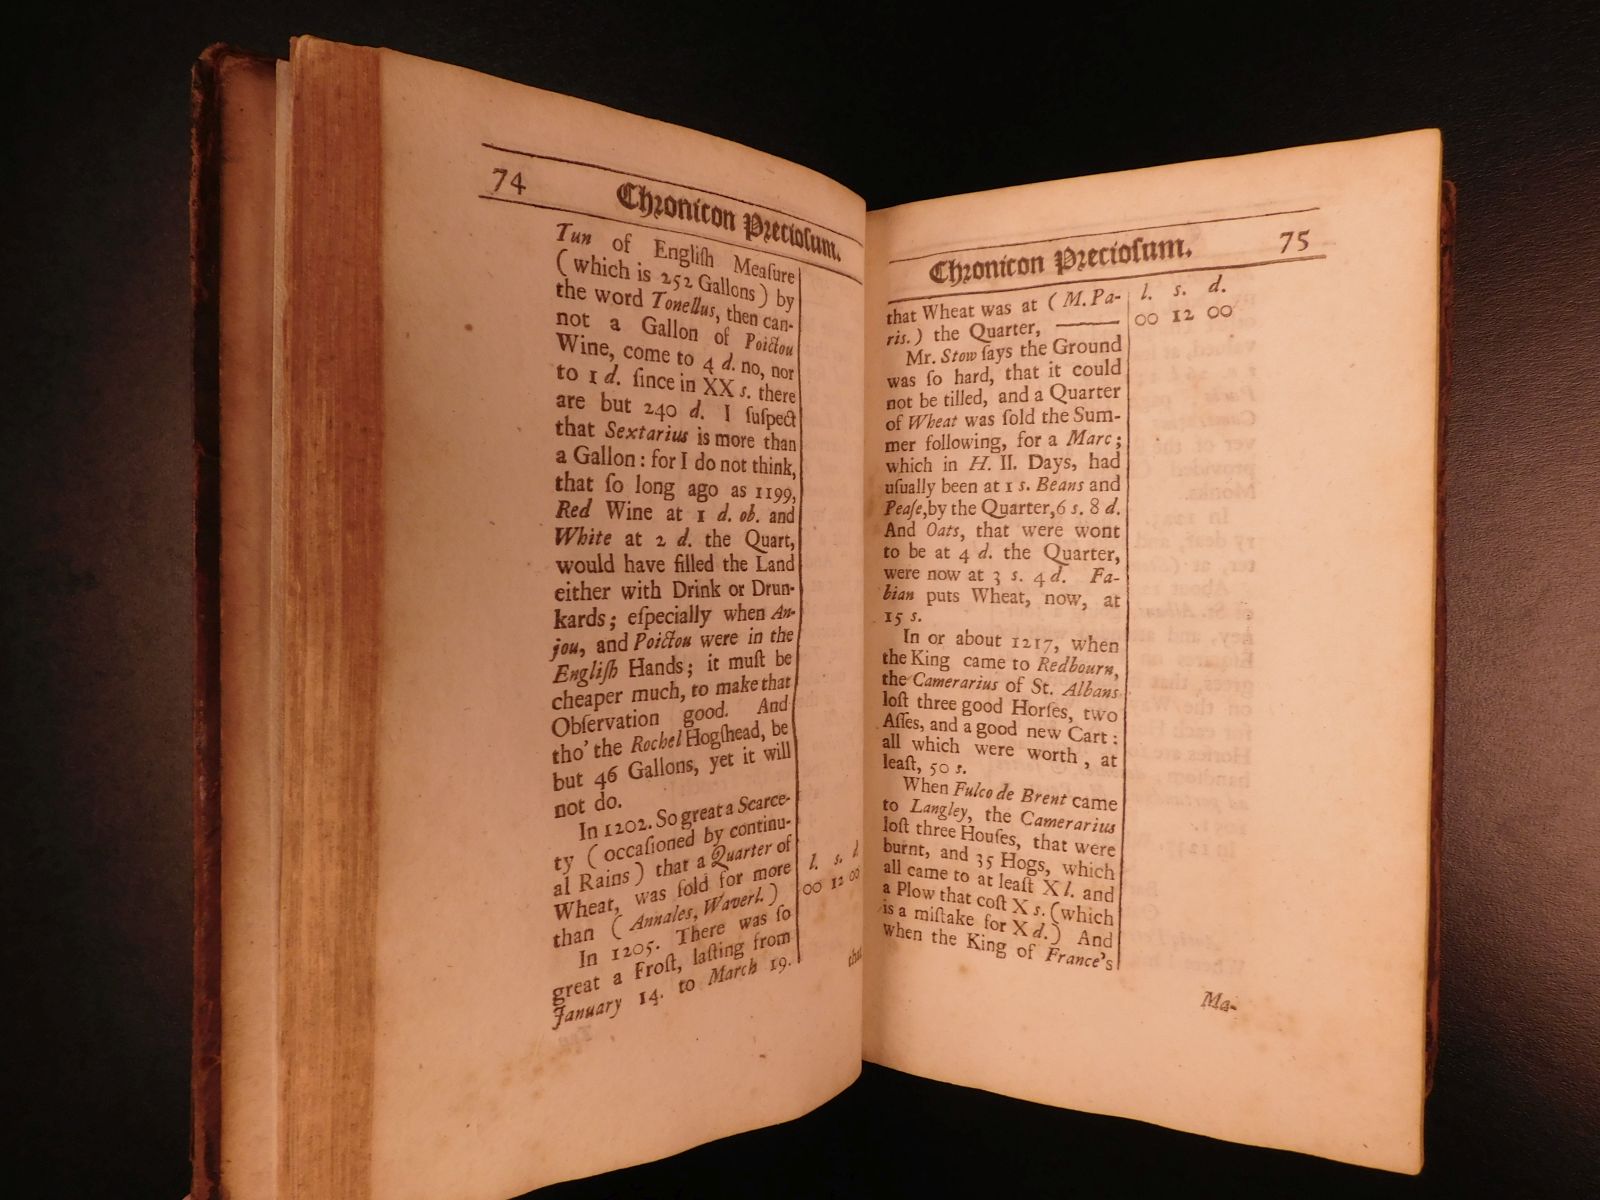 74
Chronicon Preciosum.
Tun of Engliſh Meaſure
( which is 252 Gallons ) by
the word Tonellus, then can-
not a Gallon of Poictou
Wine, come to 4 d. no, nor
to 1 d. ſince in XX s. there
are but 240 d. I ſuſpect
that Sextarius is more than
a Gallon : for I do not think,
that ſo long ago as 1199,
Red Wine at 1 d. ob. and
White at 2 d. the Quart,
would have filled the Land
either with Drink or Drun-
kards; eſpecially when An-
jou, and Poictou were in the
Engliſh Hands; it muſt be
cheaper much, to make that
Obſervation good. And
tho' the Rochel Hogſhead, be
but 46 Gallons, yet it will
not do.
In 1202. So great a Scarce-
ty ( occaſioned by continu-
al Rains ) that a Quarter of
Wheat, was ſold for more
than ( Annales, Waverl. )
l. s. d
00 12 00
In 1205. There was ſo
great a Froſt, laſting from
January 14. to March 19.
that
Chronicon Preciosum.
75
that Wheat was at ( M. Pa-
ris. ) the Quarter, ———
l. s. d.
00 12 00
Mr. Stow ſays the Ground
was ſo hard, that it could
not be tilled, and a Quarter
of Wheat was ſold the Sum-
mer following, for a Marc;
which in H. II. Days, had
uſually been at 1 s. Beans and
Peaſe,by the Quarter,6 s. 8 d.
And Oats, that were wont
to be at 4 d. the Quarter,
were now at 3 s. 4 d. Fa-
bian puts Wheat, now, at
15 s.
In or about 1217, when
the King came to Redbourn,
the Camerarius of St. Albans
loſt three good Horſes, two
Aſſes, and a good new Cart :
all which were worth , at
leaſt, 50 s.
When Fulco de Brent came
to Langley, the Camerarius
loſt three Houſes, that were
burnt, and 35 Hogs, which
all came to at leaſt X l. and
a Plow that coſt X s. (which
is a miſtake for X d.) And
when the King of France's
Ma-